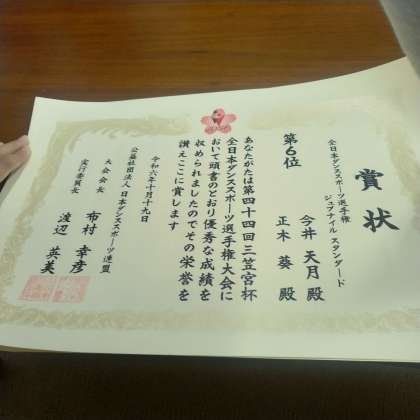 賞状
全日本ダンススポーツ選手権
ジュブナイル スタンダード
第6位
今井 天月 殿
正木 葵 殿
あなたがたは第四十四回三笠宮杯
全日本ダンススポーツ選手権大会に
おいて頭書のとおり優秀な成績を
収められましたのでその栄誉を
讃えここに賞します
令和六年十月十九日
公益社団法人 日本ダンススポーツ連盟
大会会長 市村 幸彦
実行委員長 渡辺 英美